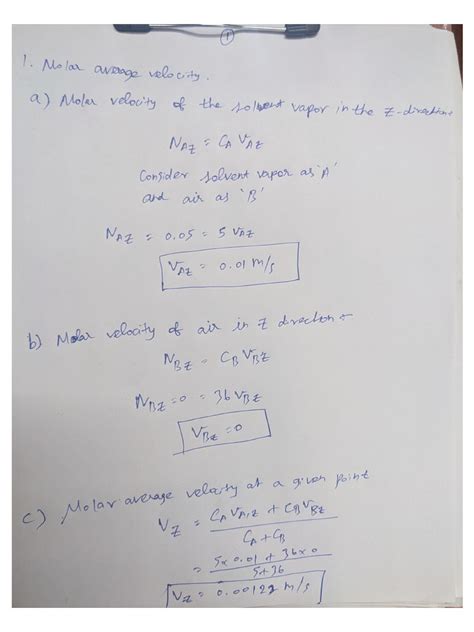 1
1. Molar average velocity.
a) Molar velocity of the solvent vapor in the z-direction
N_AZ = C_A V_AZ
Consider solvent vapor as 'A'
and air as 'B'
N_AZ = 0.05 = 5 V_AZ
V_AZ = 0.01 m/s
b) Molar velocity of air in z direction :-
N_BZ = C_B V_BZ
N_BZ = 0 = 36 V_BZ
V_BZ = 0
c) Molar average velocity at a given point
V_Z = C_A V_A,Z + C_B V_BZ
C_A + C_B
= 5x 0.01 + 36 x 0
5+36
V_Z = 0.00122 m/s